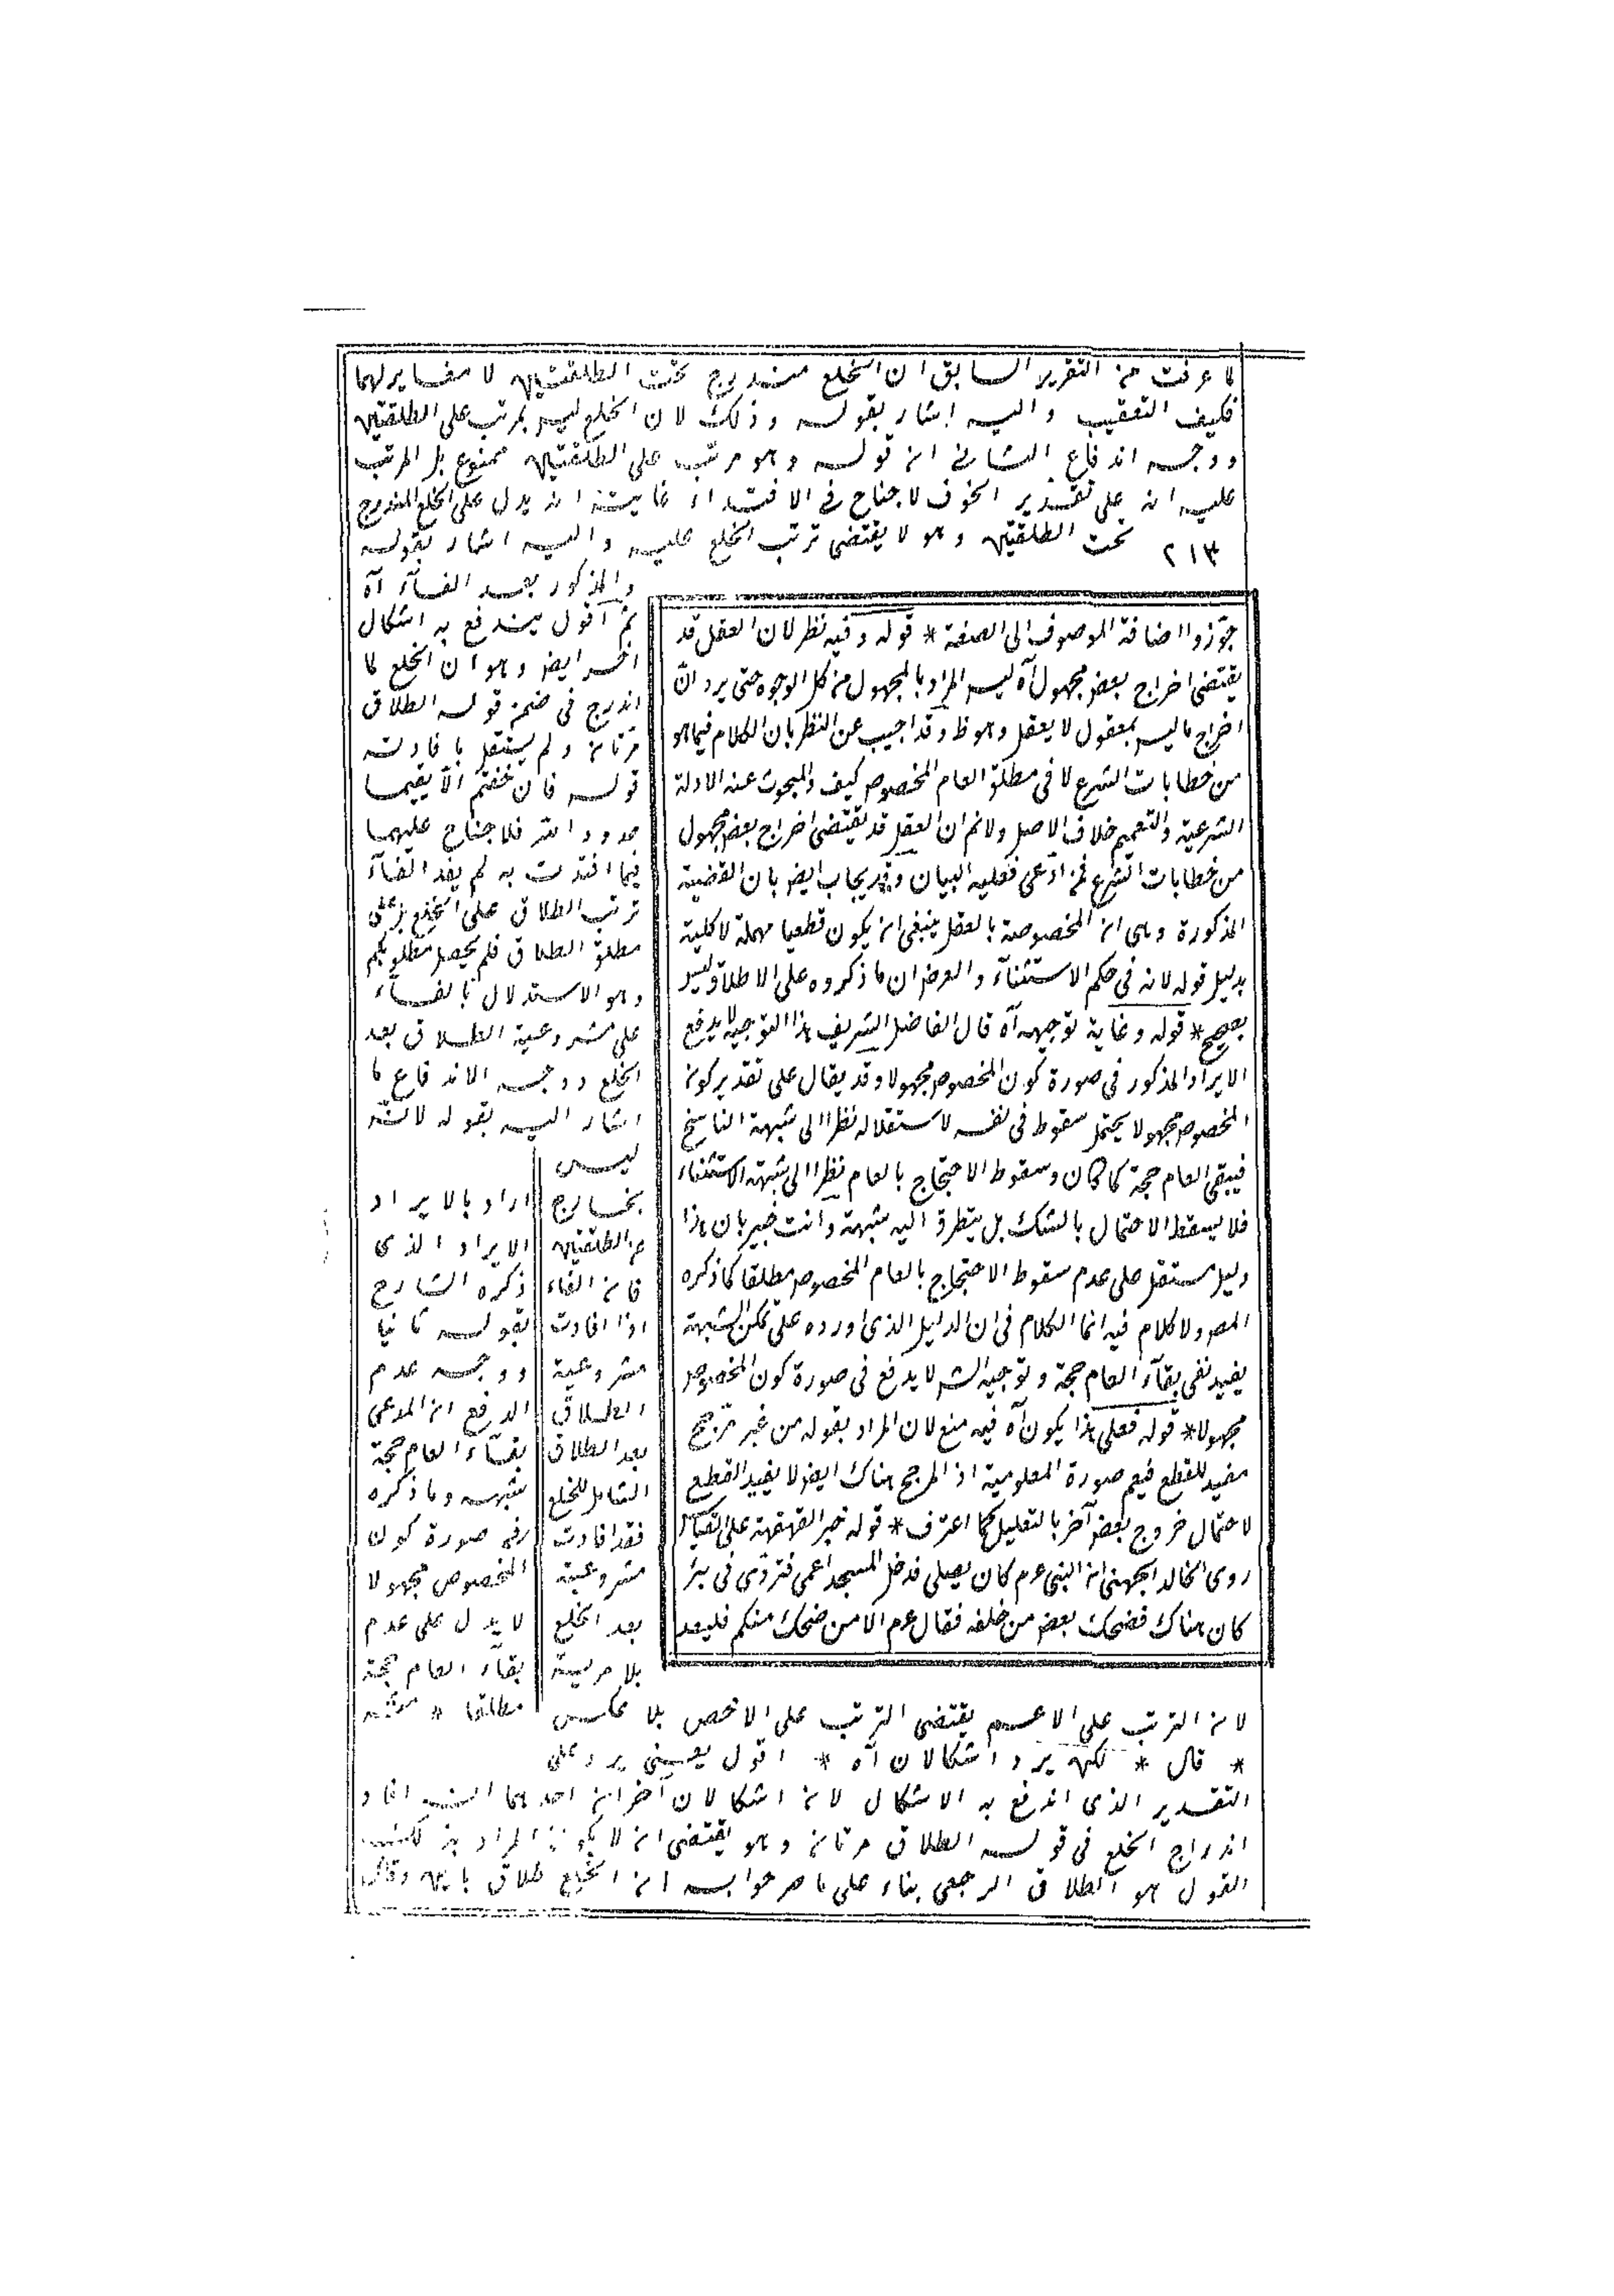 لما عرفت من التقرير السابق ان الخلع مندرج تحت الطلقتين لا مغاير لهما
فكيف التعقيب واليه اشار بقوله وذلك لان الخلع ليس بمرتب على الطلقتين
ووجه اندفاع الثانى ان قوله وهو مرتب على الطلقتين ممنوع بل المرتب
عليه ان على تقدير الخوف لا جناح فى الافتداء غايته انه يدل على الخلع المندرج
تحت الطلقتين وهو لا يقتضى ترتب الخلع عليه واليه اشار بقوله
٢١٣
والمذكور بعد الفآء آه
ثم اقول يندفع به اشكال
اخر ايض وهو ان الخلع لما
اندرج فى ضمن قوله الطلاق
مرتان ولم يستقل بافادته
قوله فان خفتم الا يقيما
حدود الله فلا جناح عليهما
فيما افتدت به لم يفد الفآء
ترتب الطلاق على الخلع بل على
مطلق الطلاق فلم يحصل مطلوبكم
وهو الاستدلال بالفآء
على مشروعية الطلاق بعد
الخلع ووجه الاندفاع ما
اشار اليه بقوله لانه
ليس
بخارج
عن الطلقتين
فان الفاء
اذا افادت
مشروعية
الطلاق
بعد الطلاق
الشامل للخلع
فقد افادت
مشروعيته
بعد الخلع
بلا مرية
لان الترتب على الاعم يقتضى الترتب على الاخص بلا عكس
* قال * لكن يرد اشكالان آه * اقول يعنى يرد على
التقدير الذى اندفع به الاشكال لان اشكالان آخران احدهما انه افاد
اندراج الخلع فى قوله الطلاق مرتان وهو يقتضى ان لا يكون المراد بذلك
القول هو الطلاق الرجعى بناء على ما صرحوا به ان الخلع طلاق باين وقال
جوّزوا اضافة الموصوف الى الصفة * قوله وفيه نظر لان العقل قد
يقتضى اخراج بعض مجهول آه ليس المراد بالمجهول من كل الوجوه حتى يرد انّ
اخراج ما ليس بمعقول لا يعقل وهو ظ وقد اجيب عن النظر بان الكلام فيما هو
من خطابات الشرع لا فى مطلق العام المخصوص كيف والمبحوث عنه الادلة
الشرعية والتعميم خلاف الاصل ولانم ان العقل قد يقتضى اخراج بعض مجهول
من خطابات الشرع فمن ادّعى فعليه البيان وقد يجاب ايض بان القضية
المذكورة وهى ان المخصوصة بالعقل ينبغى ان يكون قطعيا مهملة لا كلية
بدليل قوله لانه فى حكم الاستثنآء والغرض ان ما ذكروه على الاطلاق ليس
بصحيح * قوله وغاية توجيهه آه قال الفاضل الشريف هذا التوجيه لا يدفع
الايراد المذكور فى صورة كون المخصوص مجهولا وقد يقال على تقدير كون
المخصوص مجهولا يحتمل سقوط فى نفسه لاستقلاله نظرا الى شبهة الناسخ
فيبقى العام حجة كما كان وسقوط الاحتجاج بالعام نظرا الى شبهة الاستثناء
فلا يسقط الاحتمال بالشك بل يتطرق اليه شبهة وانت خبير بان هذا
دليل مستقل على عدم سقوط الاحتجاج بالعام المخصوص مطلقا كما ذكره
المص ولا كلام فيه انما الكلام فى ان الدليل الذى اورده على تمكن الشبهة
يفيد نفى بقآء العام حجة وتوجيه الش لا يدفع فى صورة كون المخصوص
مجهولا * قوله فعلى هذا يكون آه فيه منع لان المراد بقوله من غير مرجح
مفيد للقطع فيعم صورة المعلومية اذ المرجح هناك ايض لا يفيد القطع
لاحتمال خروج بعض آخر بالتعليل كما اعترف * قوله خبر القهقهة على القياس
روى الخالد الجهنى ان النبى عم كان يصلى فدخل المسجد اعمى فتردّى فى بئر
كان هناك فضحك بعض من خلفه فقال عم الا من ضحك منكم فليعد
اراد بالايراد
الايراد الذى
ذكره الشارح
بقوله ثانيا
ووجه عدم
الدفع ان المدعى
بقآء العام حجة
بشبهة وما ذكره
فى صورة كون
المخصوص مجهولا
لا يدل على عدم
بقاء العام حجة
مطلقا * منه